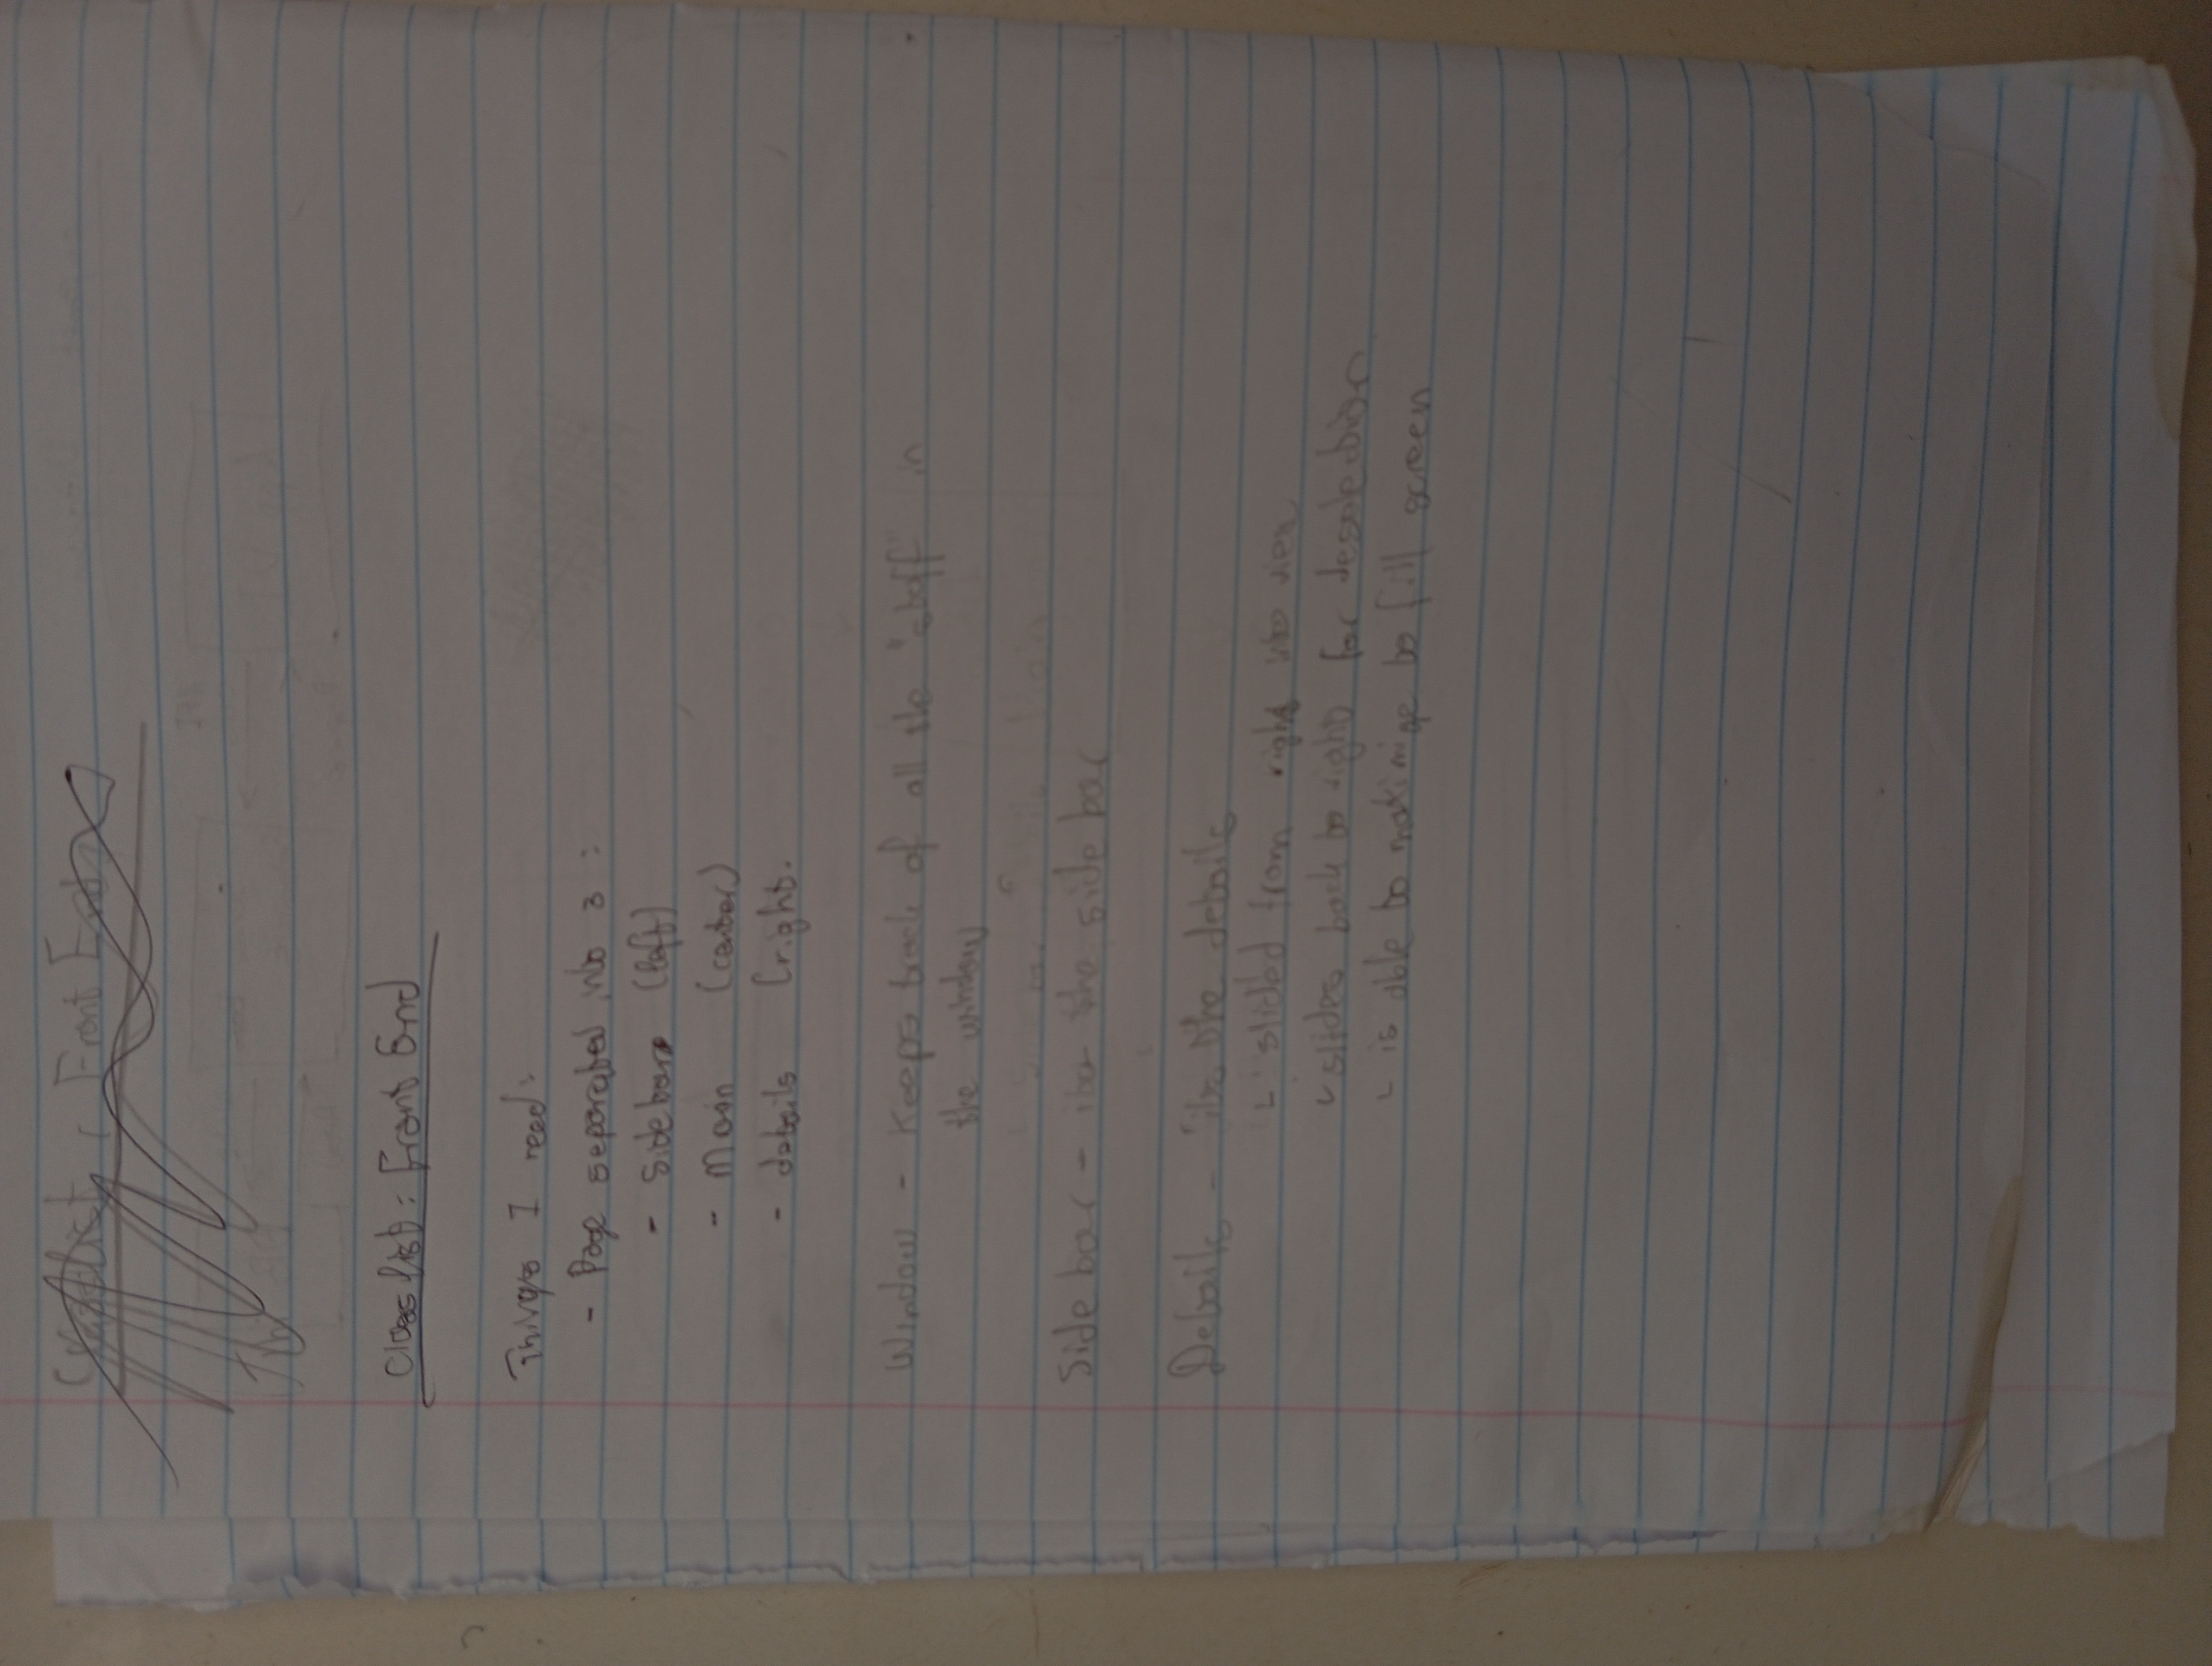 Front End
Class list : Front End
Things I need :
- Page separated into 3 :
- Sidebar (left)
- Main (center)
- details (right.
Window - Keeps track of all the "stuff" in
the window
Main
Side bar - its the side bar
Details - its the details
slided from right into view
slides back to right for deselection
is able to maximize to fill screen